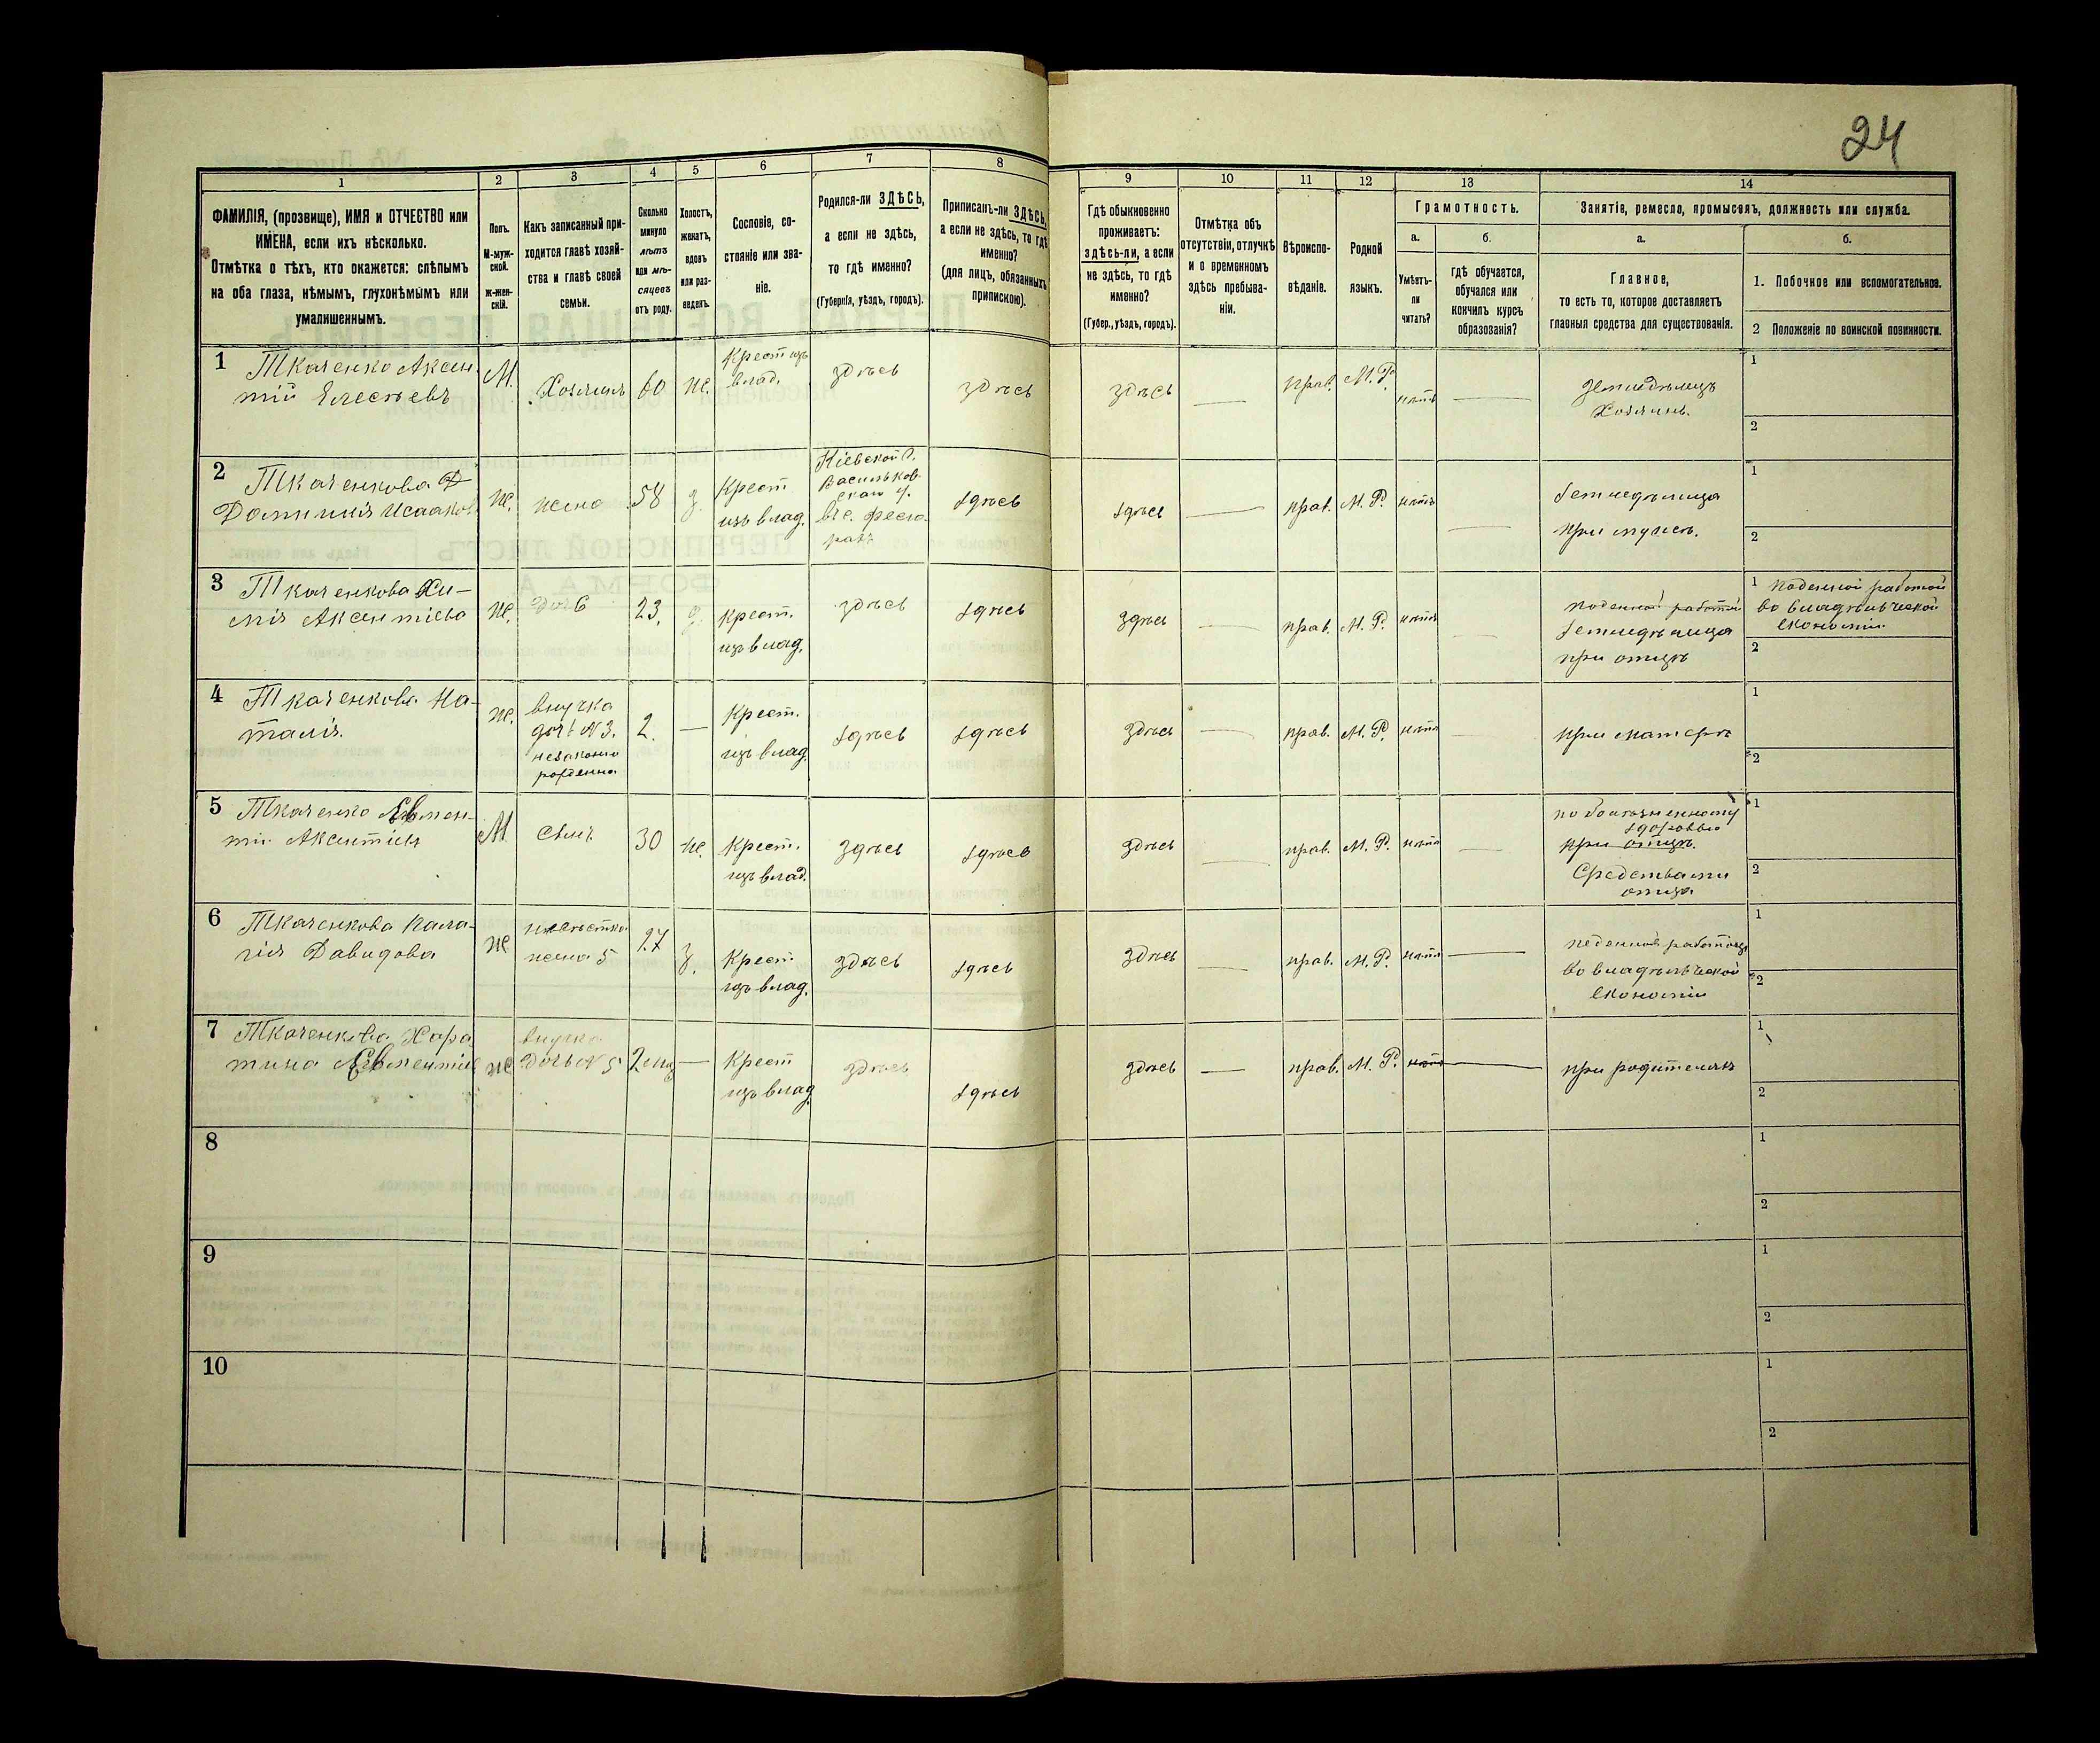 24
1
2
3
4
5
6
7
8
9
10
11
12
13
14
ФАМИЛІЯ, (прозвище), ИМЯ и ОТЧЕСТВО или
ИМЕНА, если ихъ нѣсколько.
Отмѣтка о тѣхъ, кто окажется: слѣпымъ
на оба глаза, нѣмымъ, глухонѣмымъ или
умалишеннымъ.
Полъ.
М-муж-
ской.
ж-жен-
скій.
Какъ записанный при-
ходится главѣ хозяй-
ства и главѣ своей
семьи.
Сколько
минуло
лѣтъ
или мѣ-
сяцевъ
отъ роду.
Холостъ,
женатъ,
вдовъ
или раз-
веденъ.
Сословіе, со-
стояніе или зва-
ніе.
Родился-ли ЗДѢСЬ,
а если не здѣсь,
то гдѣ именно?
(Губернія, уѣздъ, городъ).
Приписанъ-ли ЗДѢСЬ,
а если не здѣсь, то гдѣ
именно?
(для лицъ, обязанныхъ
припискою).
Гдѣ обыкновенно
проживаетъ:
здѣсь-ли, а если
не здѣсь, то гдѣ
именно?
(Губер., уѣздъ, городъ).
Отмѣтка объ
отсутствіи, отлучкѣ
и о временномъ
здѣсь пребыва-
ніи.
Вѣроиспо-
вѣданіе.
Родной
языкъ.
Грамотность.
а.
Умѣетъ-
ли
читать?
б.
гдѣ обучается,
обучался или
кончилъ курсъ
образованія?
Занятіе, ремесло, промыселъ, должность или служба.
а.
Главное,
то есть то, которое доставляетъ
главныя средства для существованія.
б.
1. Побочное или вспомогательное.
2 Положеніе по воинской повинности.
1
Ткаченко Аксен
тій Елесѣевъ
М.
Хозяинъ
60
ж.
Крест изъ
влад.
здѣсь
здѣсь
здѣсь
прав.
М. Р.
нѣтъ
Земледѣлецъ
Хозяинъ.
1
2
2
Ткаченкова Д
Домникія Исааков
ж.
жена
58
з.
Крест
изъ влад.
Кіевской г.
Васильков
скаго у.
здѣсь
здѣсь
прав.
М. Р.
нѣтъ
Земледѣлица
при мужѣ.
1
2
3
Ткаченкова Хи-
мія Аксентіева
ж.
дочь
23,
крест.
изъ влад.
здѣсь
здѣсь
здѣсь
прав.
М. Р.
нѣтъ
поденной работой
Земледѣлица
при отцѣ
1 поденной работой
во владѣльческой
економіи
2
4
Ткаченкова На-
талія.
ж.
внучка
дочь № 3.
незаконно
рожденна
2.
Крест.
изъ влад.
здѣсь
здѣсь
здѣсь
прав.
М. Р.
нѣтъ
при матерѣ
1
2
5
Ткаченко Евмен-
тій Аксентіев
М.
сынъ
30
ж.
Крест.
изъ влад.
здѣсь
здѣсь
здѣсь
прав.
М. Р.
нѣтъ
по болѣзненному
здоровью
при отцѣ.
Средствами
отца
1
2
6
Ткаченкова Пала-
гія Давидова
ж
невѣстка
жена 5
27
з.
Крест
изъ влад.
здѣсь
здѣсь
здѣсь
прав.
М. Р.
нѣтъ
поденной работой
во владѣльческой
економіи
1
2
7
Ткаченкова Хара
тина Евментіев
ж
внучка
дочь № 5
2 мѣ
Крест
изъ влад
здѣсь
здѣсь
здѣсь
прав.
М. Р.
нѣтъ
при родителяхъ
1
2
8
1
2
9
1
2
10
1
2